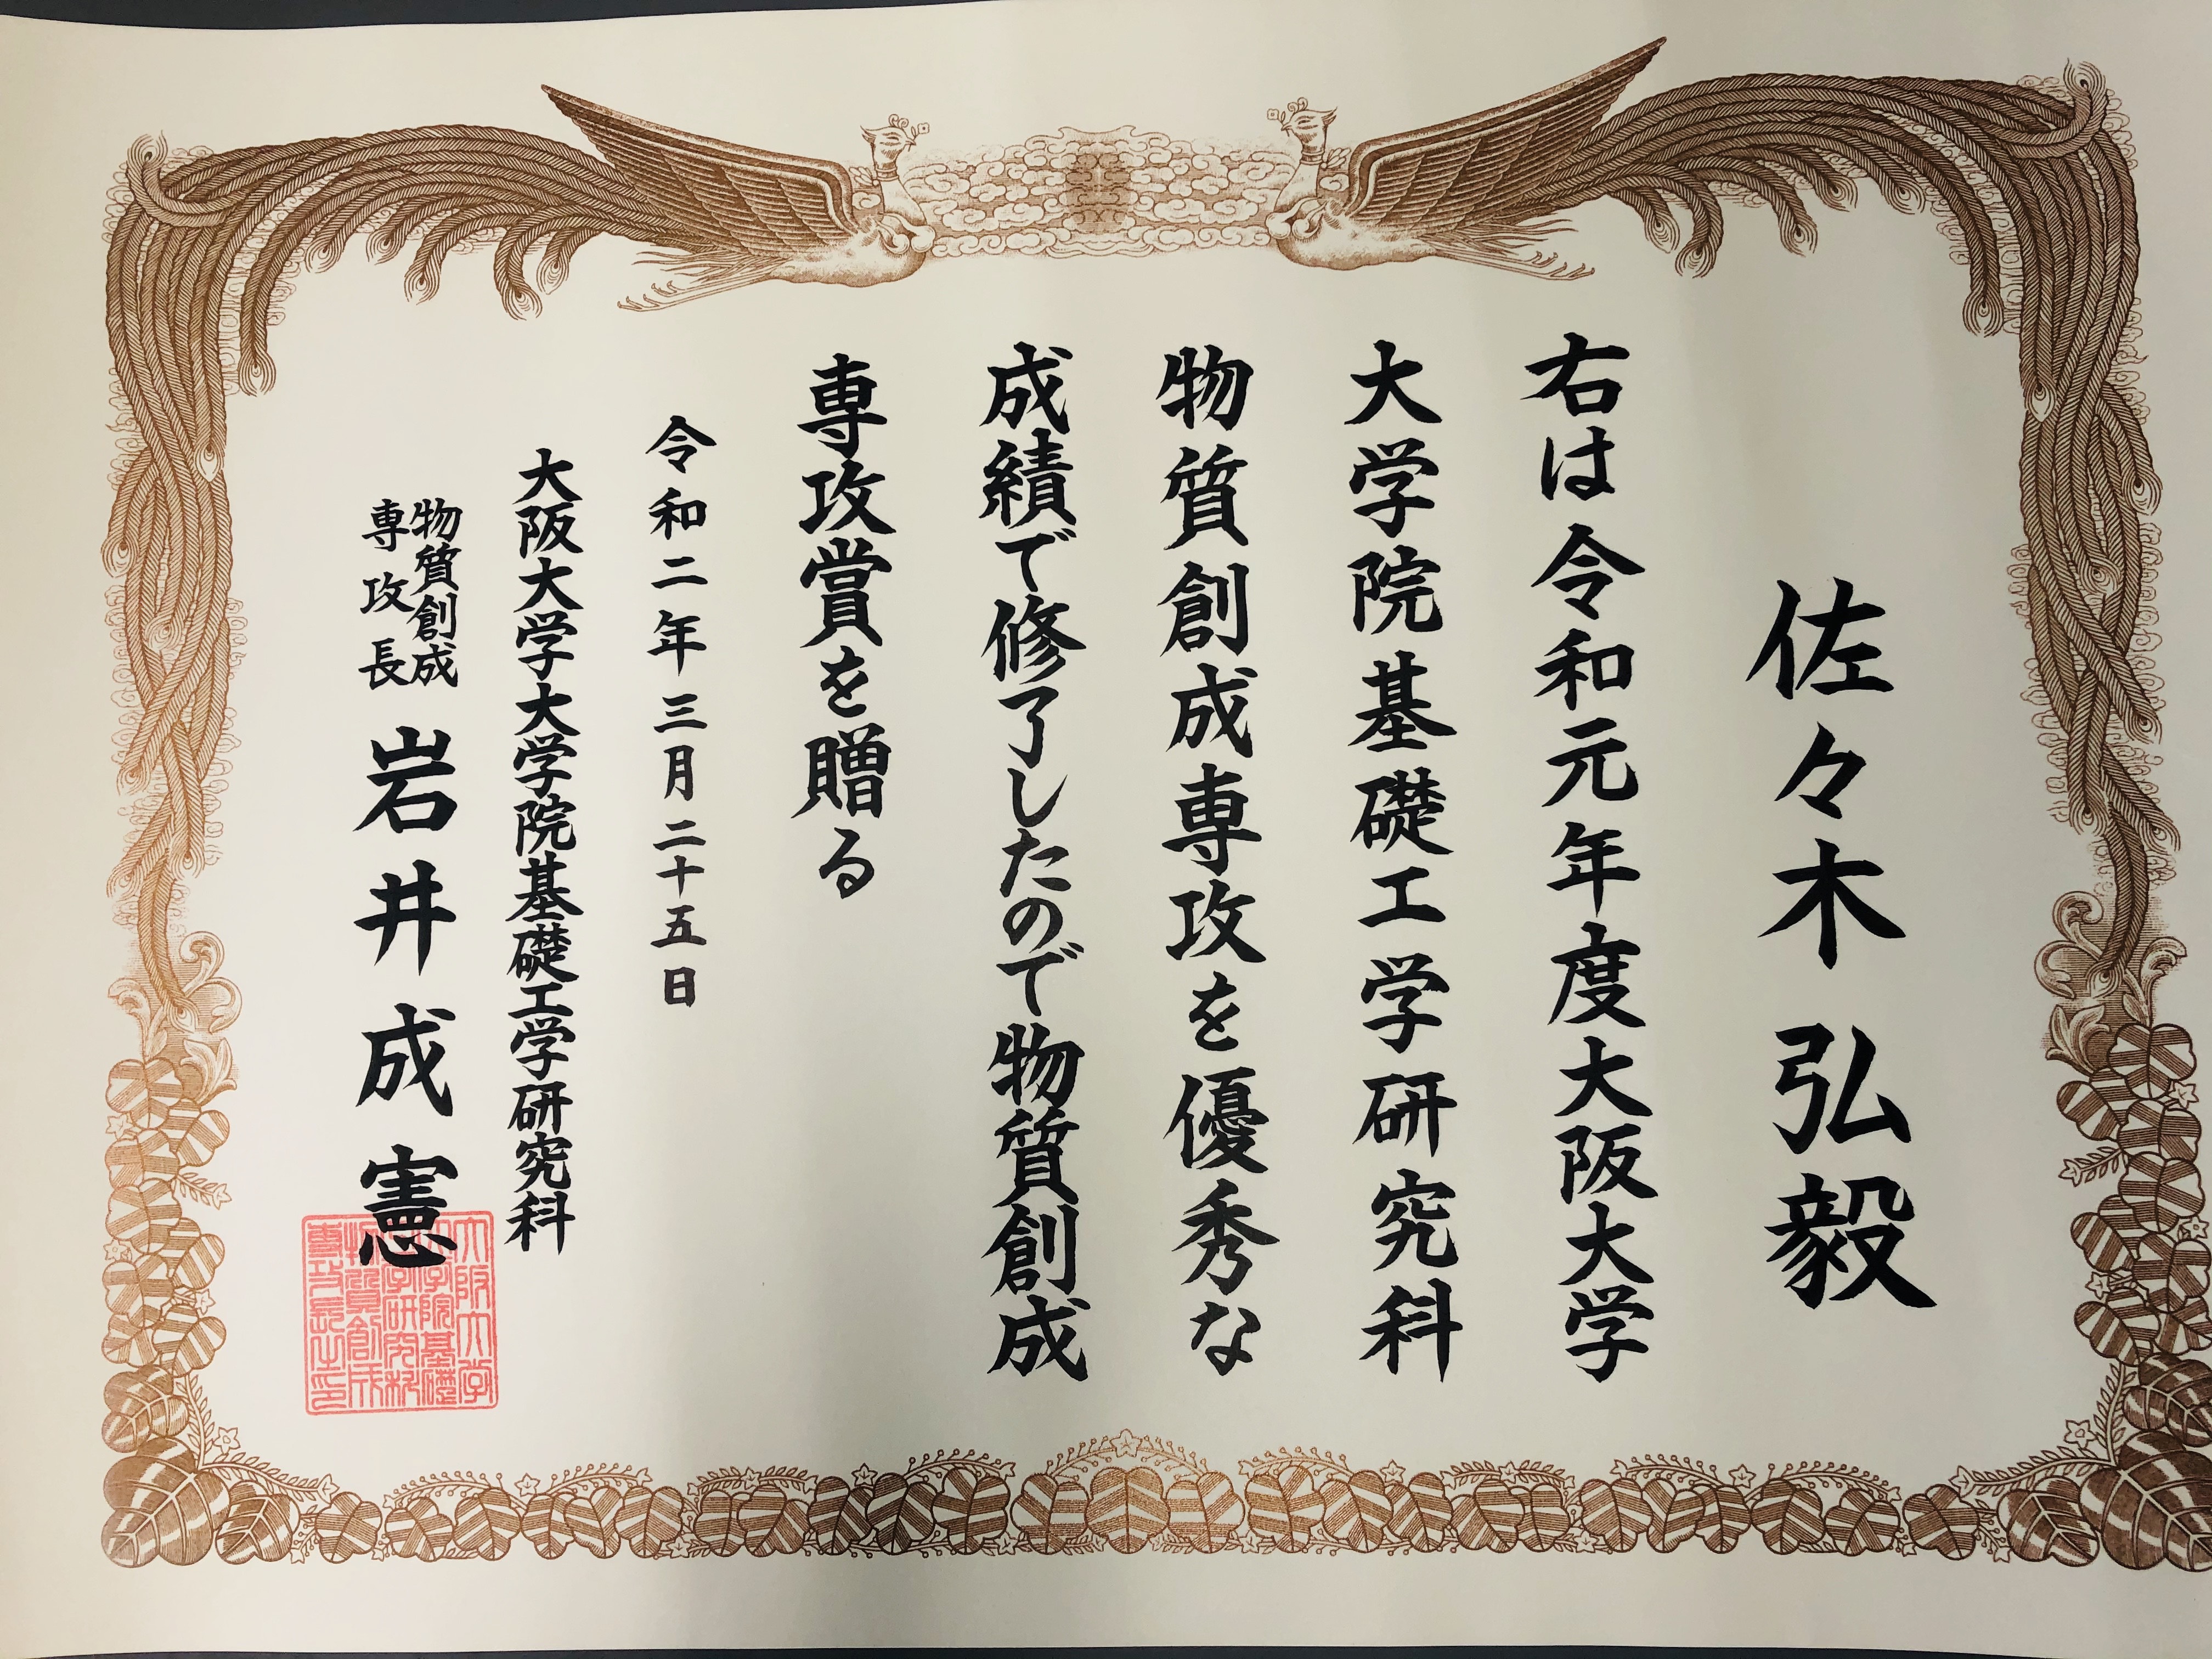 佐々木弘毅
右は令和元年度大阪大学
大学院基礎工学研究科
物質創成専攻を優秀な
成績で修了したので物質創成
専攻賞を贈る
令和二年三月二十五日
大阪大学大学院基礎工学研究科
物質創成
専攻長
岩井成憲
大阪大学
大学院基礎
工学研究科
物質創成
専攻長之印